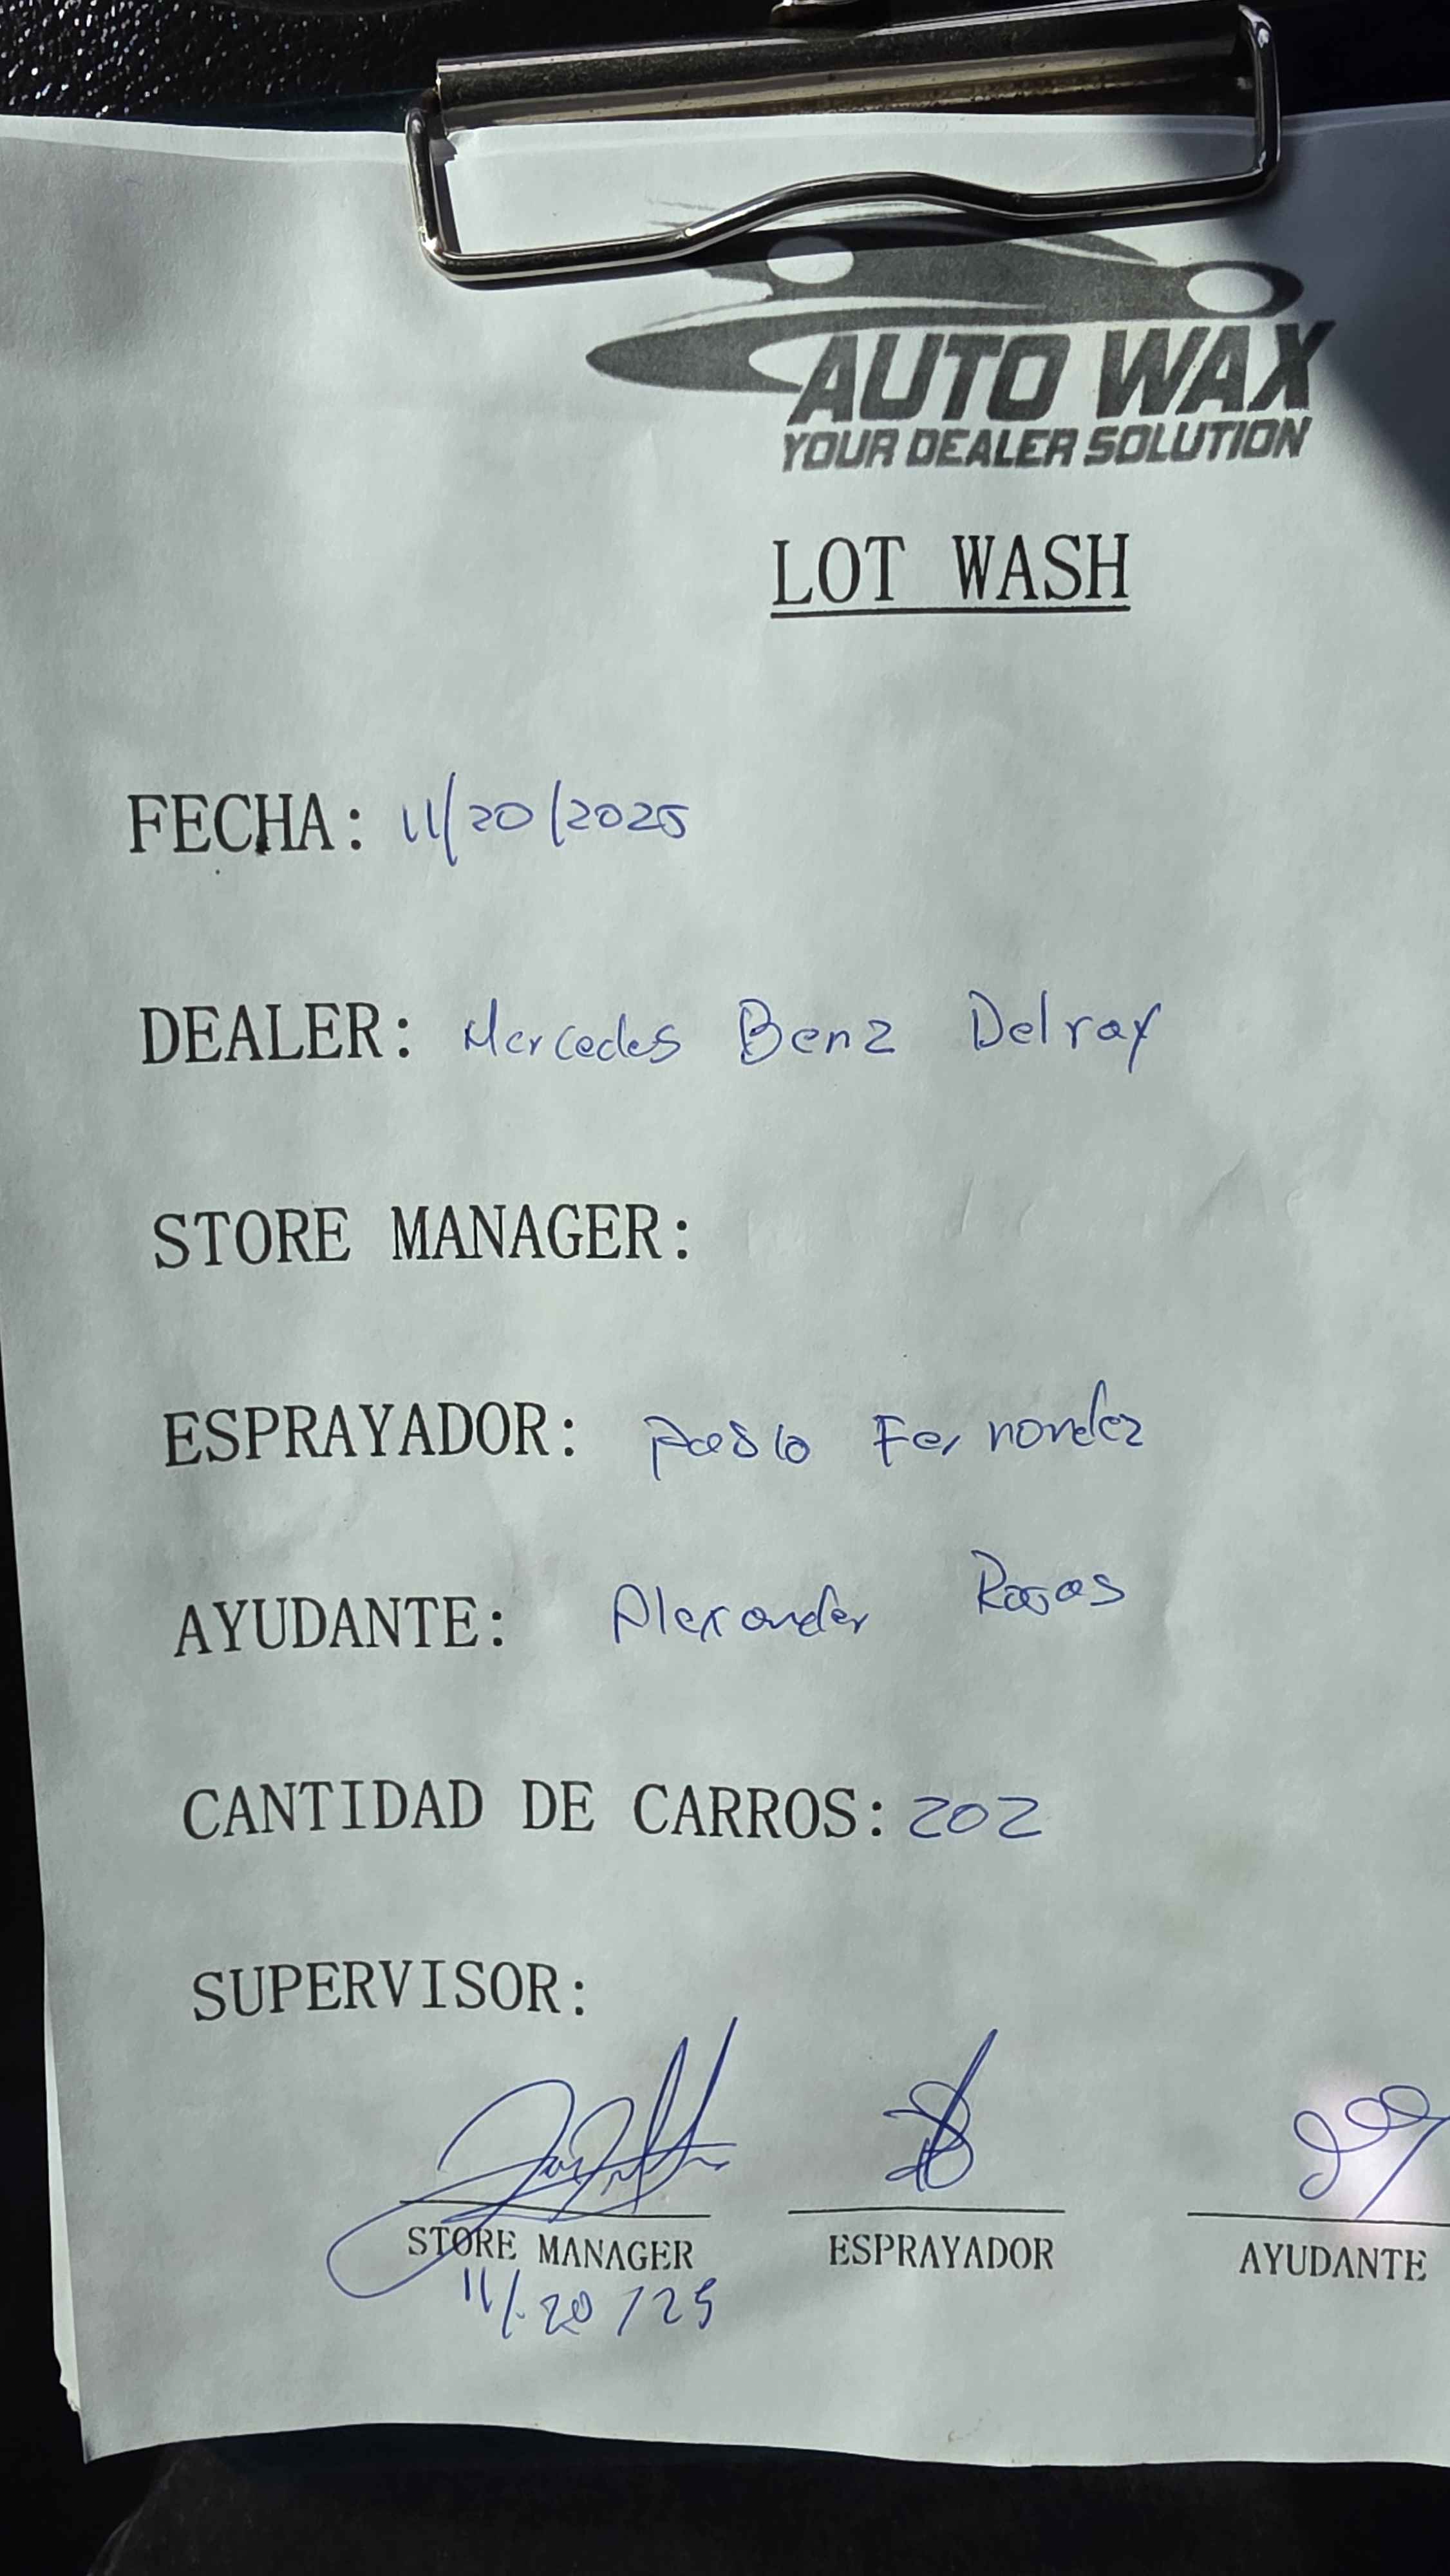 AUTO WAX
YOUR DEALER SOLUTION
LOT WASH
FECHA: 11/20/2025
DEALER: Mercedes Benz Delray
STORE MANAGER:
ESPRAYADOR: Pablo Fernandez
AYUDANTE: Alexander Rosas
CANTIDAD DE CARROS: 202
SUPERVISOR:
STORE MANAGER ESPRAYADOR AYUDANTE
11/20/25